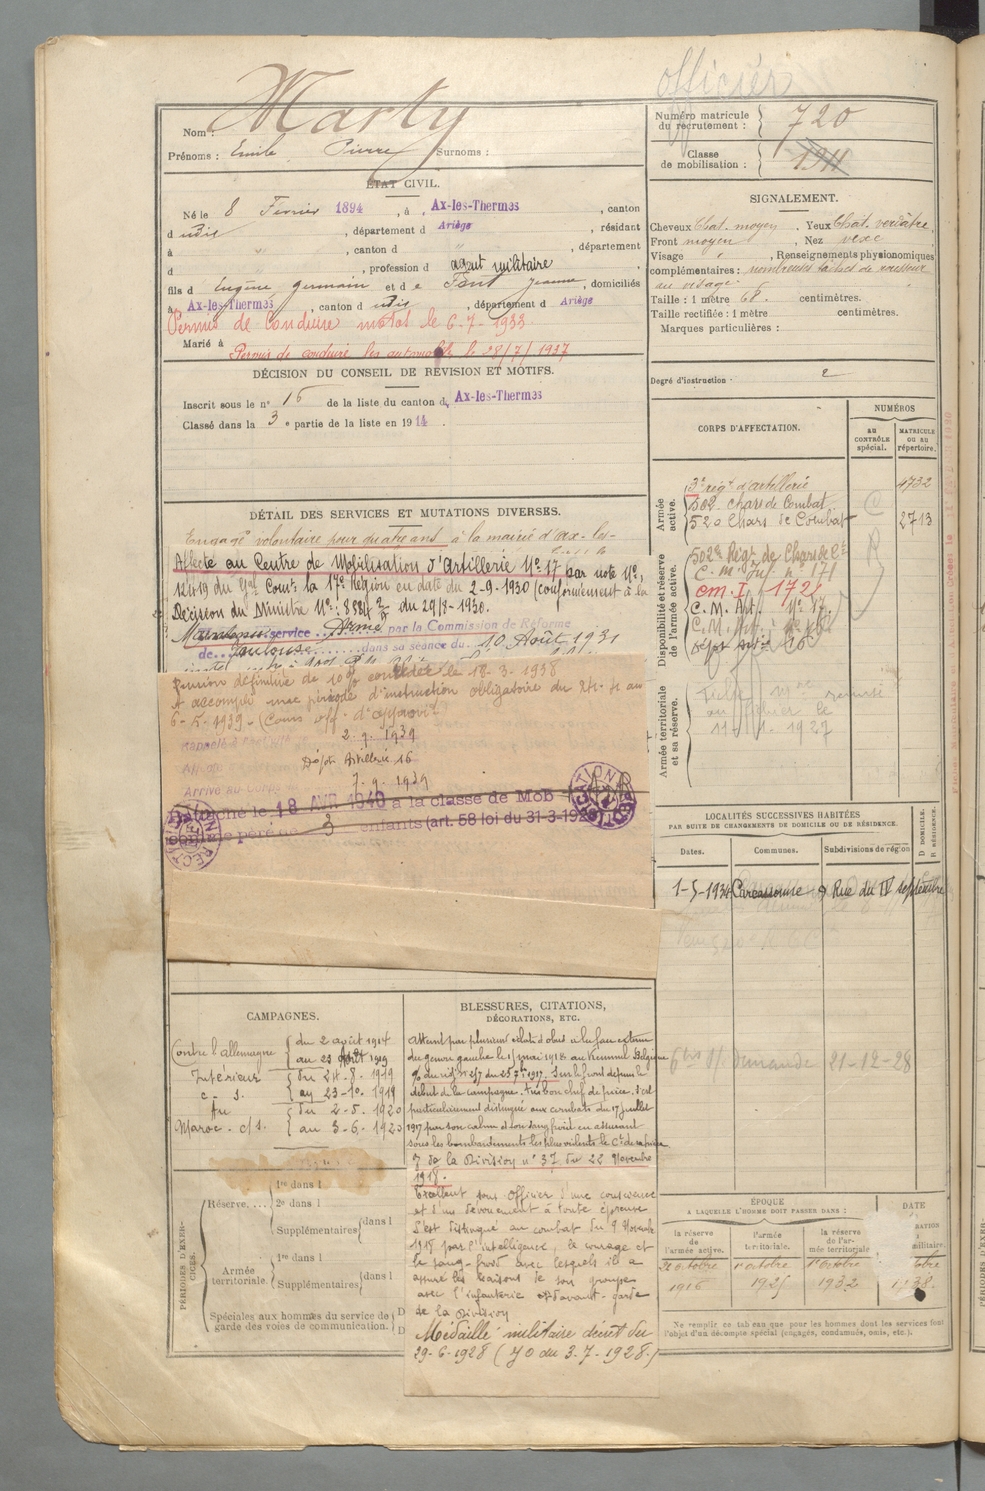 officier
Nom : Marty
Prénoms : Emile Pierre Surnoms :
Numéro matricule du recrutement : 720
Classe de mobilisation : 1911
ÉTAT CIVIL.
Né le 8 Fevrier 1894, à Ax-les-Thermes, canton
d udit, département d Ariège, résidant
à " , canton d " , département
d " , profession d agent militaire
fils d Eugène Germain et de Font Jeanne, domiciliés
à Ax-les-Thermes, canton d udit, département d Ariège
Permis de Conduire motos le 6-7-1933
Marié à
Permis de conduire les automobile le 28/7/1937
SIGNALEMENT.
Cheveux Chat. moyen. Yeux Chat. verdâtre,
Front moyen, Nez vexe
Visage , Renseignements physionomiques
complémentaires : nombreuses taches de rousseur
au visage.
Taille : 1 mètre 68. centimètres.
Taille rectifiée : 1 mètre centimètres.
Marques particulières :
Degré d'instruction : 2
DÉCISION DU CONSEIL DE REVISION ET MOTIFS.
Inscrit sous le n° 16 de la liste du canton d Ax-les-Thermes
Classé dans la 3e partie de la liste en 1914.
CORPS D'AFFECTATION.
NUMÉROS
AU CONTRÔLE spécial.
MATRICULE OU AU répertoire.
Armée active.
3e régt d'artillerie 4732
502 Chars de Combat
520 Chars de Combat 2713
Disponibilité et réserve de l'armée active.
502e Régt de Chars de Ct
C. M. Inf. n° 171
C.M.I 172
C. M. Art. N° 17.
Dépôt 16
Armée territoriale et sa réserve.
au fichier le
1927
DÉTAIL DES SERVICES ET MUTATIONS DIVERSES.
Engagé volontaire pour quatre ans à la mairie d'Ax-les-
Affecté au Centre de Mobilisation d'Artillerie N° 17 par note N°
12419 du Gal Comt la 17e Région en date du 2-9-1930 (conformément à la
Décision du Ministre N° : 8584 du 29/8-1930.
Maintenu service Armé par la Commission de Réforme
de Toulouse dans sa séance du 10 Août 1931
Pension définitive de 10% concédée le 18-3-1938
A accompli une période d'instruction obligatoire du 24-4 au
6-5-1939-
Rappelé à
2.9.1939
Dépôt Artillerie 16
Arrivé au Corps le 7.9.1939
le 18 AVR 1940 à la classe de Mob
père de 3 enfants (art. 58 loi du 31-3-192
RECTIFICATION
LOCALITÉS SUCCESSIVES HABITÉES
PAR SUITE DE CHANGEMENTS DE DOMICILE OU DE RÉSIDENCE.
Dates. Communes. Subdivisions de région
D DOMICILE.
R RÉSIDENCE.
1-5-1934 Carcassonne 9 Rue du IV septembre
demande 21-12-28
CAMPAGNES.
Contre l'Allemagne du 2 août 1914
au 23 Août 1919
Intérieur du 24-8-1919
C-S. au 23-10-1919
Au du 2-5-1920
Maroc. c/s. au 3-6-1923
BLESSURES, CITATIONS,
DÉCORATIONS, ETC.
Atteint par plusieurs éclats d'obus à la face externe
du genou gauche le 1/ mai 1918 au Kemmel Belgique
% du régt n° 257 du 25 7bre 1917. Sur le front depuis le
début de la campagne. Très bon chef de pièce. S'est
particulièrement distingué aux combats du 17 juillet
1917 par son calme et son sang froid en assurant
sous les bombardements les plus violents le Ct de sa pièce
% de la Division n° 37 du 22 Novembre
1918.
Excellent sous Officier d'une conscience
et d'un dévouement à toute épreuve
S'est distingué au combat du 9 Novembre
1918 par l'intelligence, le courage et
le sang-froid avec lesquels il a
assuré les liaisons de son groupe
avec l'infanterie et d'avant-garde
de la Division
Médaille militaire décret du
29-6-1928 (JO du 3-7-1928.)
PÉRIODES D'EXERCICES.
Réserve.... 1re dans l
2e dans l
Supplémentaires dans l
Armée territoriale. 1re dans l
Supplémentaires dans l
Spéciales aux hommes du service de
garde des voies de communication.
ÉPOQUE
A LAQUELLE L'HOMME DOIT PASSER DANS :
la réserve de l'armée active.
l'armée territoriale.
la réserve de l'armée territoriale
DATE
octobre 1916
1er octobre 1925
1er octobre 1932
1938.
Ne remplir ce tableau que pour les hommes dont les services font
l'objet d'un décompte spécial (engagés, condamnés, omis, etc.).